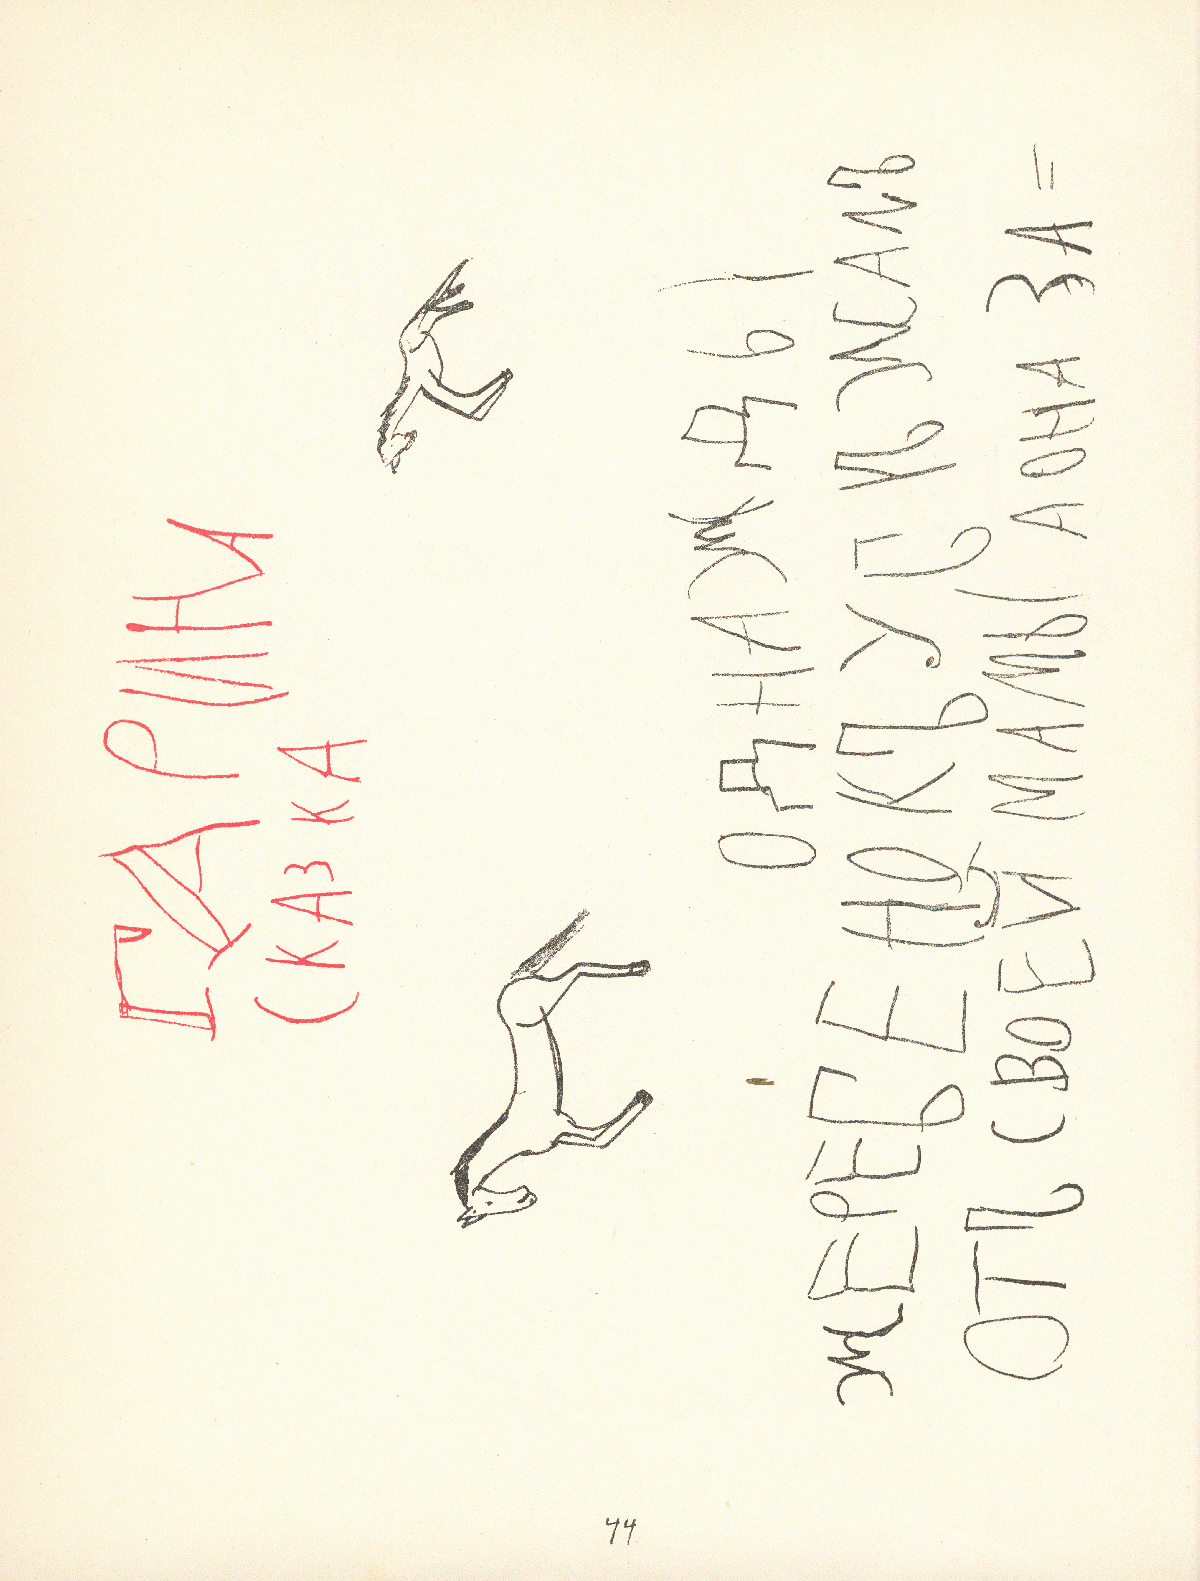 ГАРИНА
СКАЗКА
ОДНАЖДЫ
ЖЕРЕБЕНОКЪ УБѢЖАЛЪ
ОТЪ СВОЕЙ МАМЫ А ОНА ЗА=
44